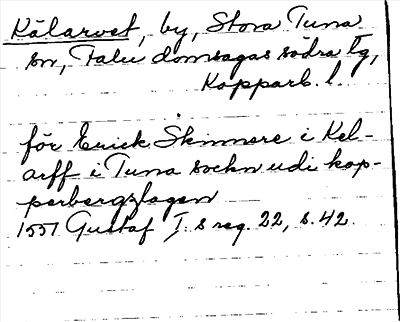 Kälarvet, by, Stora Tuna
sn, Falu domsagas södra tg,
Kopparb. l.
för Erick Skinnere i Kel-
arff i Tuna sockn udi kop-
perbergzlagen
1551 Gustaf I:s reg. 22, s. 42.